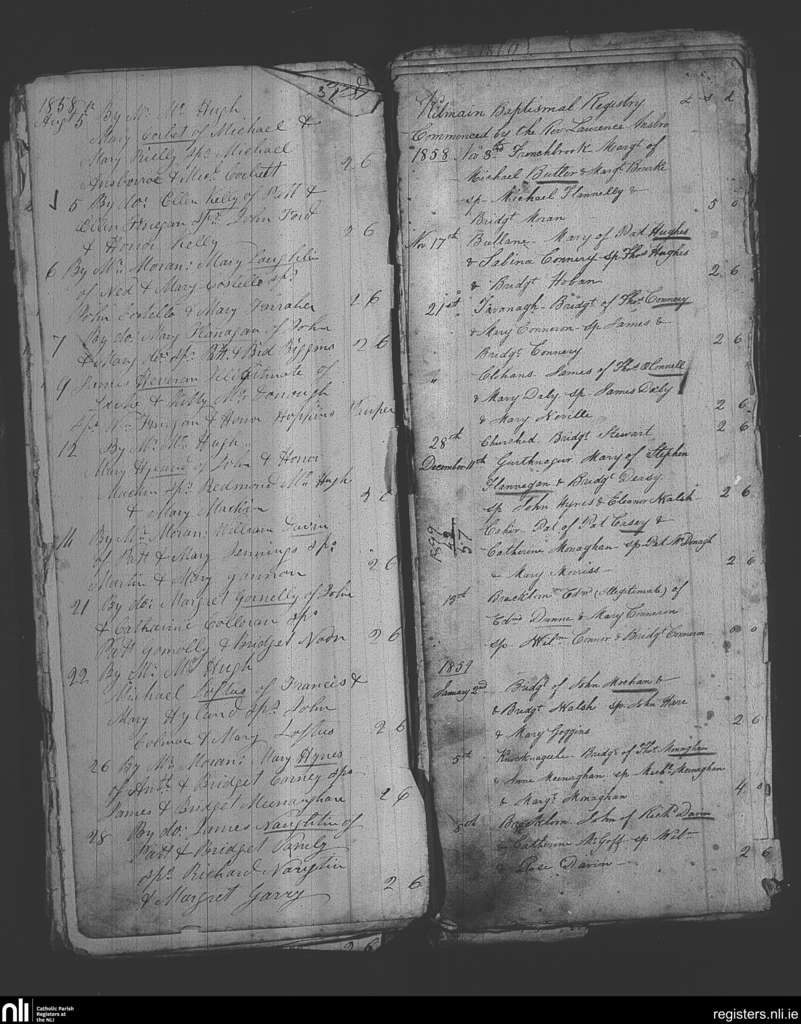 1858
Augt 5 By Mr. Mc Hugh
Mary Corbet of Michael &
Mary Reilly sps Michael
2 6
5 By do. Ellen Kelly of Patt &
Ellen Finegan sps. John Ford
& Honor Kelly 2 6
6 By Mr. Moran: Mary
of Ned & Mary Costello sps
John Costello & Mary Farraher 2 6
7 By do. Mary Flanagan of John
& Mary do. sps. Patt & Bid Biggins 2 6
9 James Heveran illegitimate of
& Mc Donough
sps Wm. Finegan & Honor Hopkins Pauper
12 By Mr. Mc Hugh
Mary Hyland of John & Honor
Machin sps. Redmond Mc Hugh
& Mary Machin
14 By Mr. Moran: William Gavin
of Patt & Mary Jennings sps.
Martin & Mary Gannon 2 6
21 By do. Margret Gonnelly of John
& Catharine Colloran sps
Patt Gonnolly & Bridget 2 6
22 By Mr. Mc Hugh
Michael Loftus of Francis &
Mary Hyland sps. John
Colman & Mary Loftus 2 6
26 By Mr. Moran: Mary Hynes
of Anty. & Bridget Corney sps
James & Bridget Meenaghan 2 6
28 By do. James Naughtin of
Patt & Bridget
sps. Richard Naughtin
& Margret Garvy 2 6
Kilmain Baptismal Registry £ s d
Commenced by the Rev Lawrence
1858 Nov 3rd Frenchbrook Margt of
Michael Butler & Margt Bourke
sp Michael Flannelly &
Bridgt Moran 5 0
Nov 17th Mary of Pat Hughes
& Sabina Connery sp Thos Hughes
& Bridgt Hoban 2 6
21st Cavanagh - Bridgt of Thos Connery
& Mary Conneron sp James &
Bridgt Connery 2 6
" Elehans James of Thos O Connell
& Mary Daly sp James Daly
& Mary Neville 2 6
28th Churched Bridgt Stewart 2 6
December 11th Mary of Stephen
Flannagan & Bridgt Deasy
sp John Hynes & Eleanor Walsh 2 6
Caher Pat of Pat Casey &
Catherine Monaghan sp Pat Mc Donagh
& Mary Morriss 2 6
Edwd (Illegitimate) of
Edwd Dunne & Mary Conneron
sp Willm Connor & Bridgt Conneron 0 0
1859
January 2nd Bridgt of John Meehan &
& Bridgt Walsh sp John Hare
& Mary Goggins 2 6
5th Bridgt of Thos Monaghan
& Anne Meenaghan sp Michl Meenaghan
& Margt Monaghan
8th John of Richd Davin
& Catherine McGoff sp Willm
& Rose Davin 2 6
1899
42
57
2 6
nli
Catholic Parish
Registers at
the NLI
registers.nli.ie